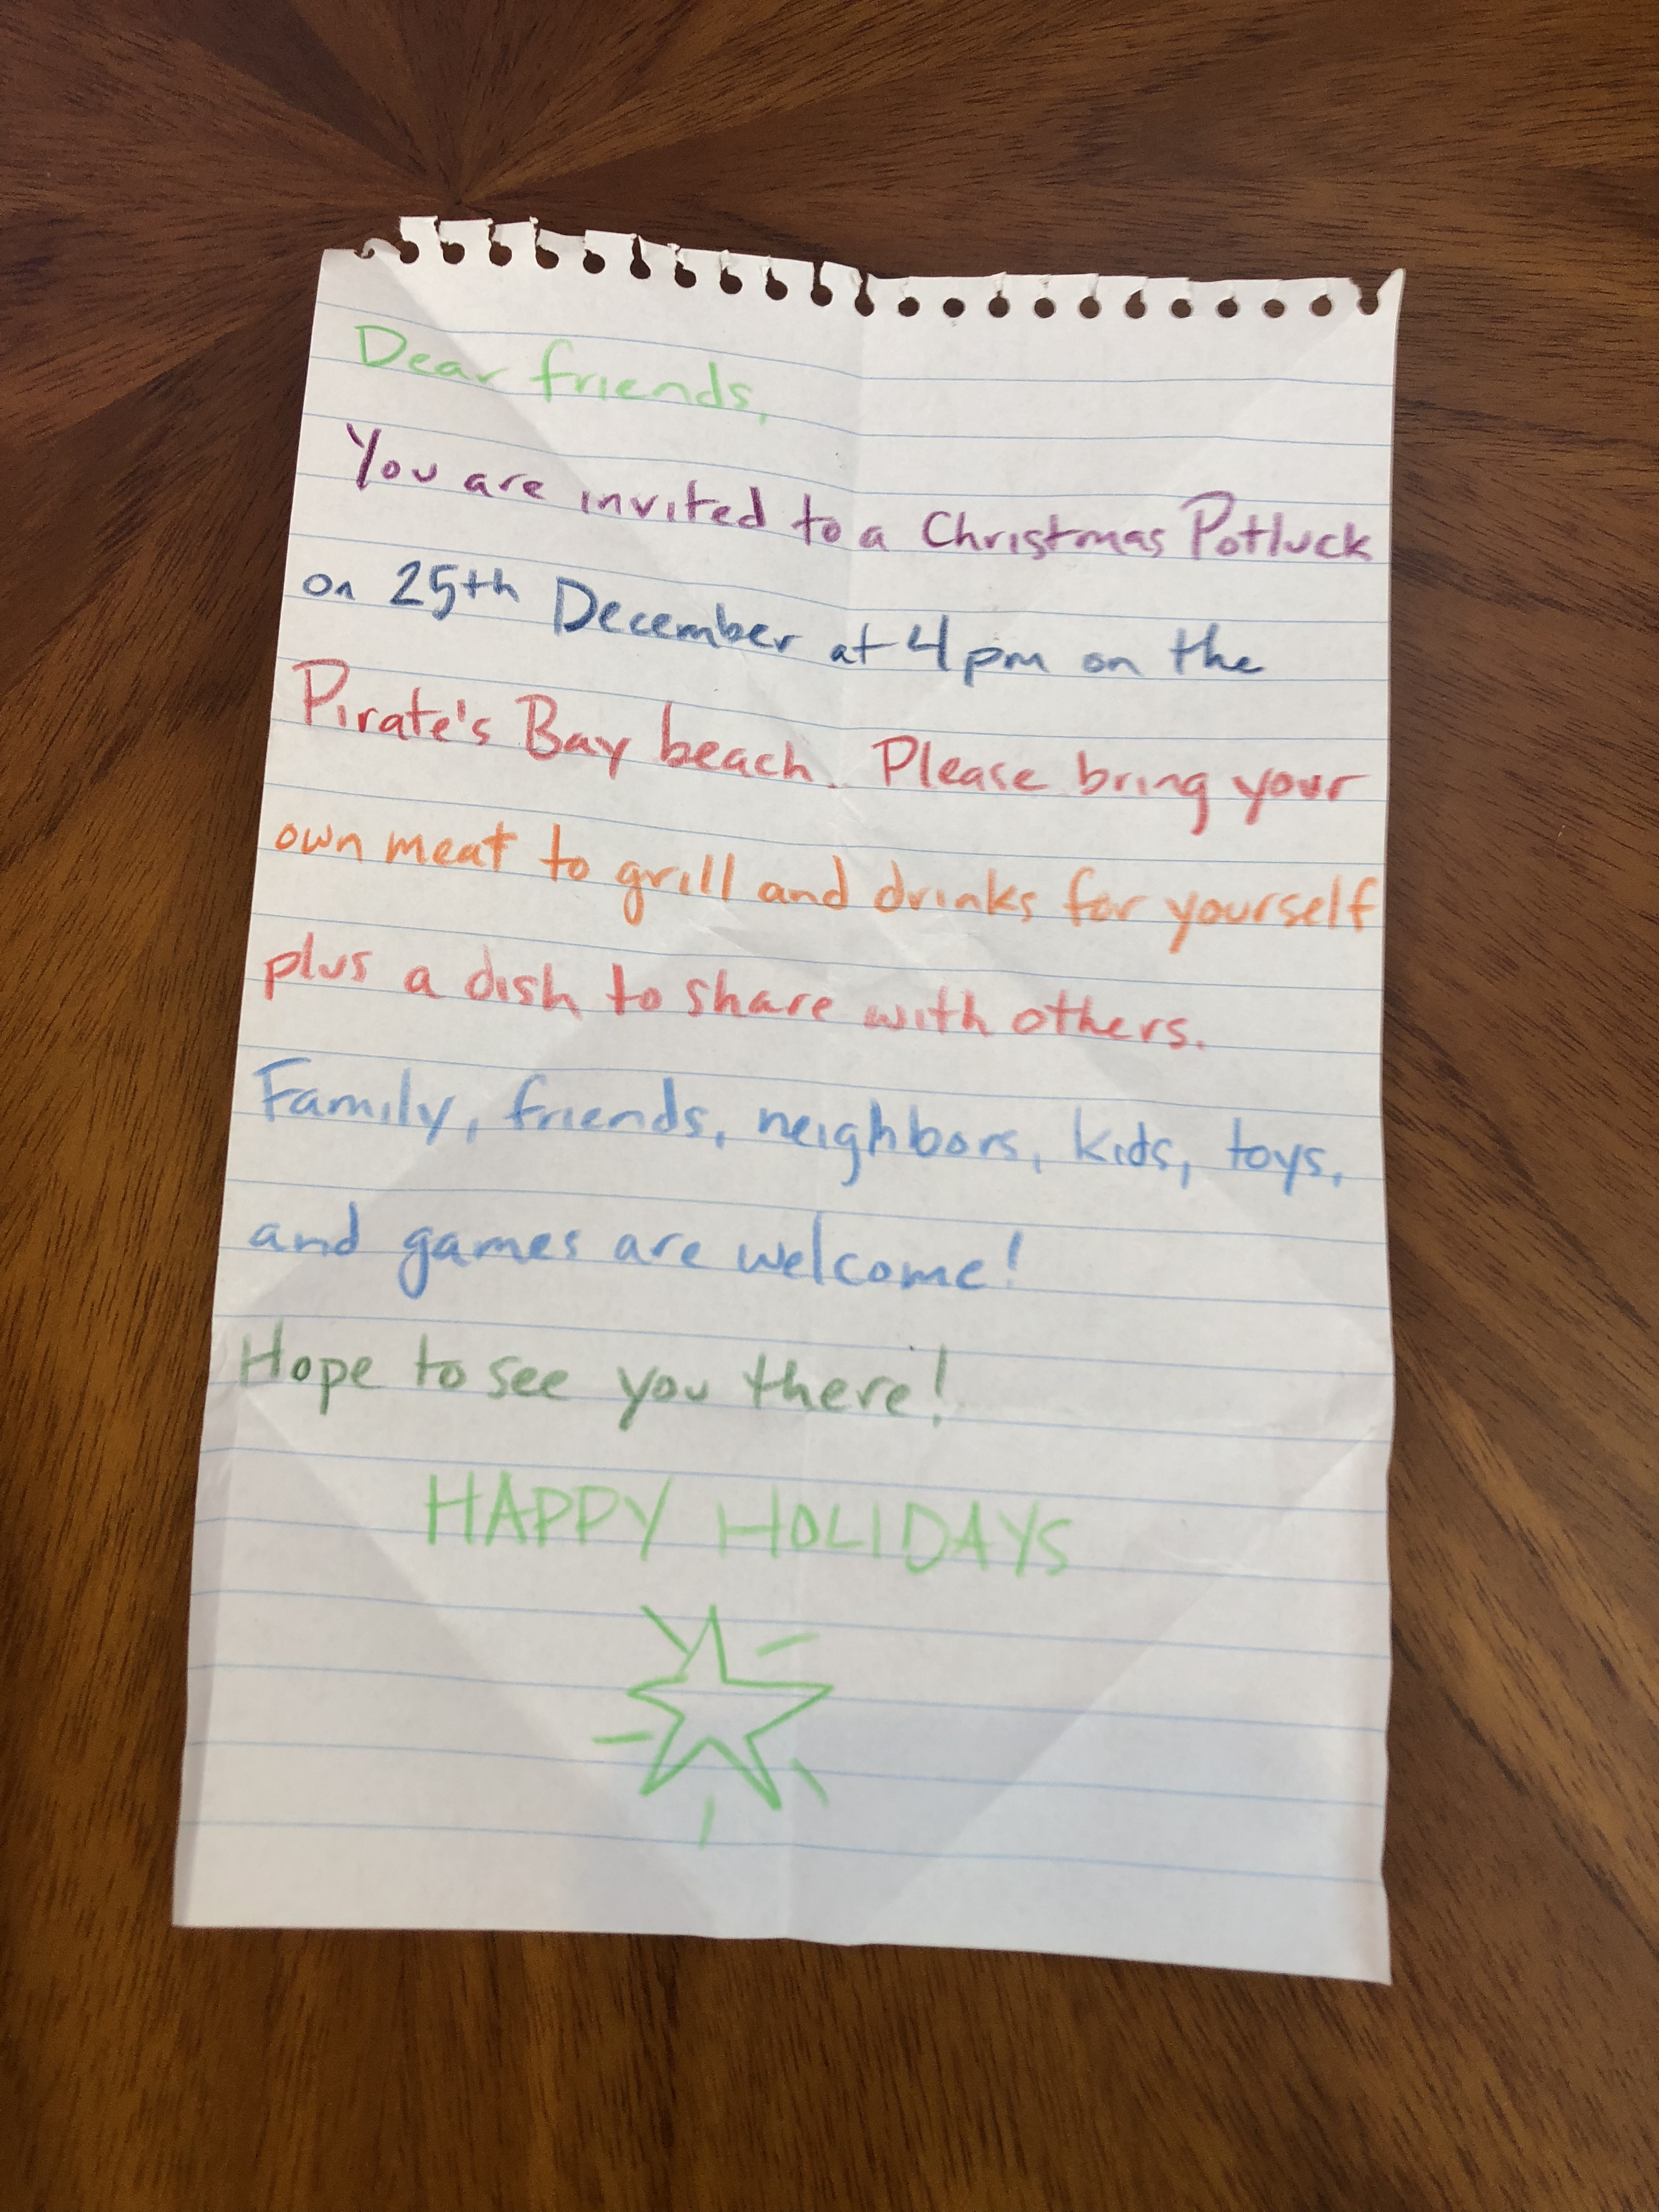 Dear friends,
You are invited to a Christmas Potluck
on 25th December at 4pm on the
Pirate's Bay beach. Please bring your
own meat to grill and drinks for yourself
plus a dish to share with others.
Family, friends, neighbors, kids, toys,
and games are welcome!
Hope to see you there!
HAPPY HOLIDAYS